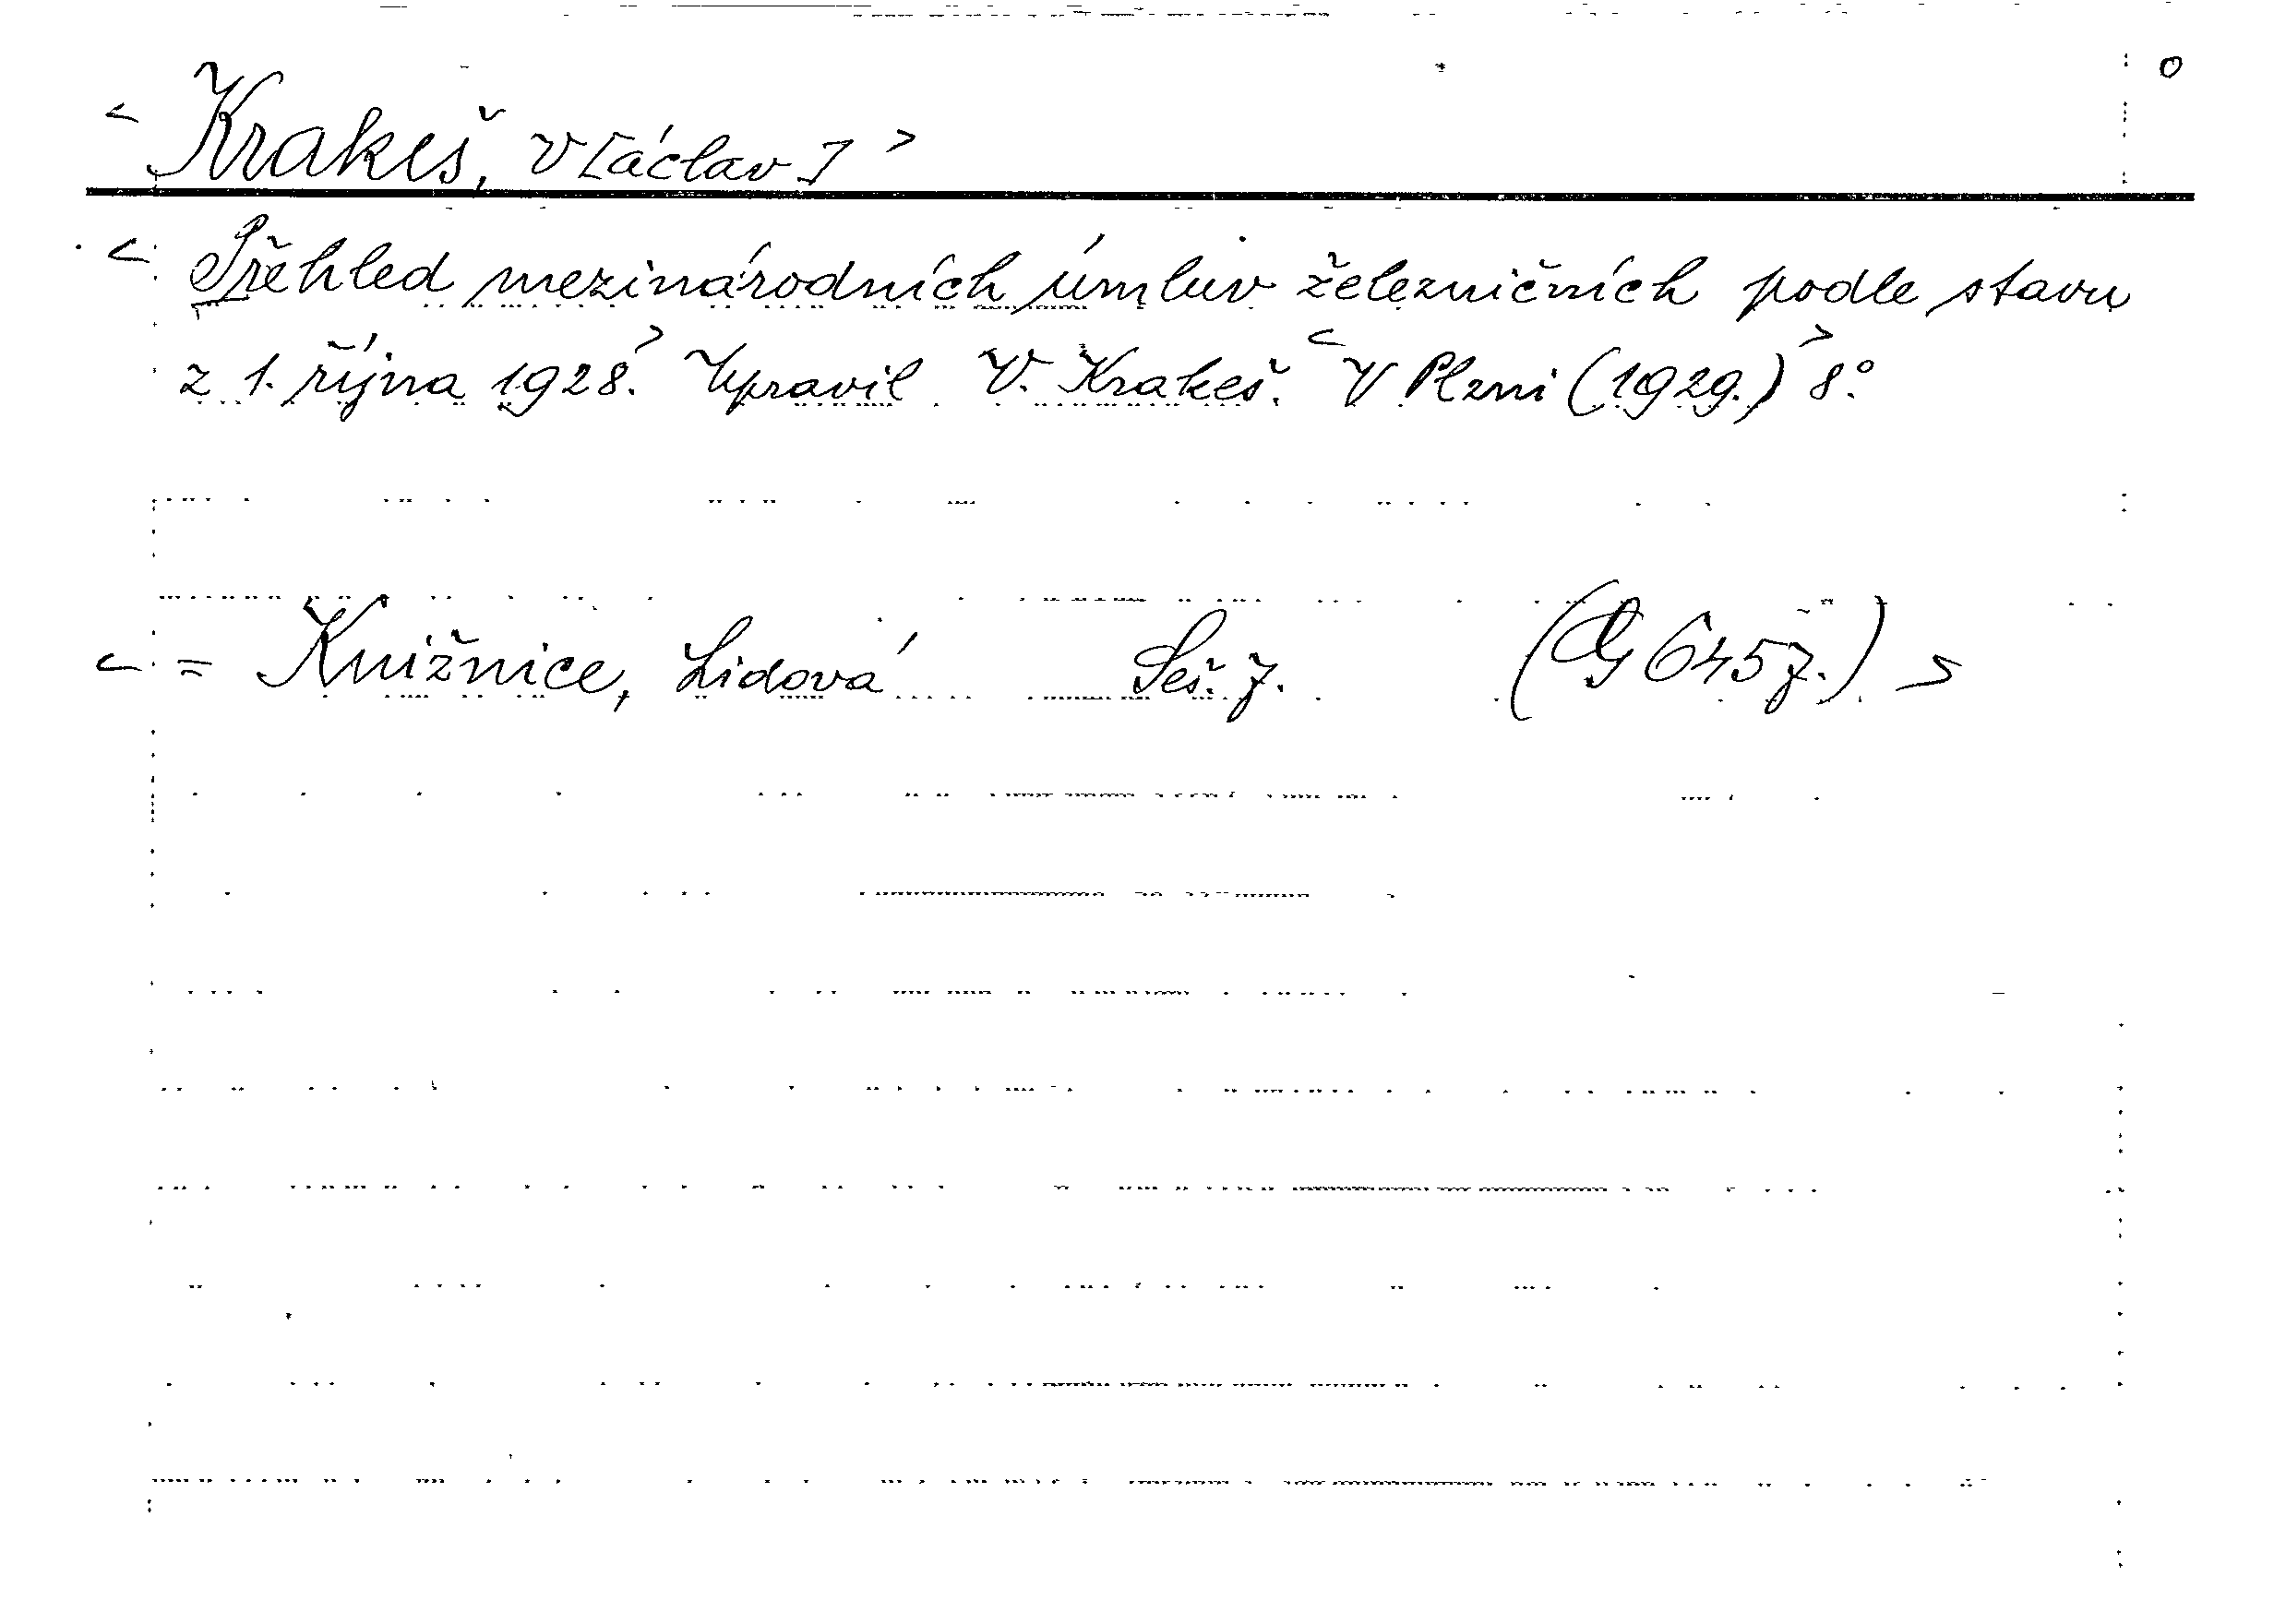 < Krakeš, V[áclav] > o
< Přehled mezinárodních úmluv železničních podle stavu
z 1. října 1928. > Upravil V. Krakeš. < V Plzni (1929.) > 8°.
< = Knižnice, Lidová Seš. 7. (G 6457.) >